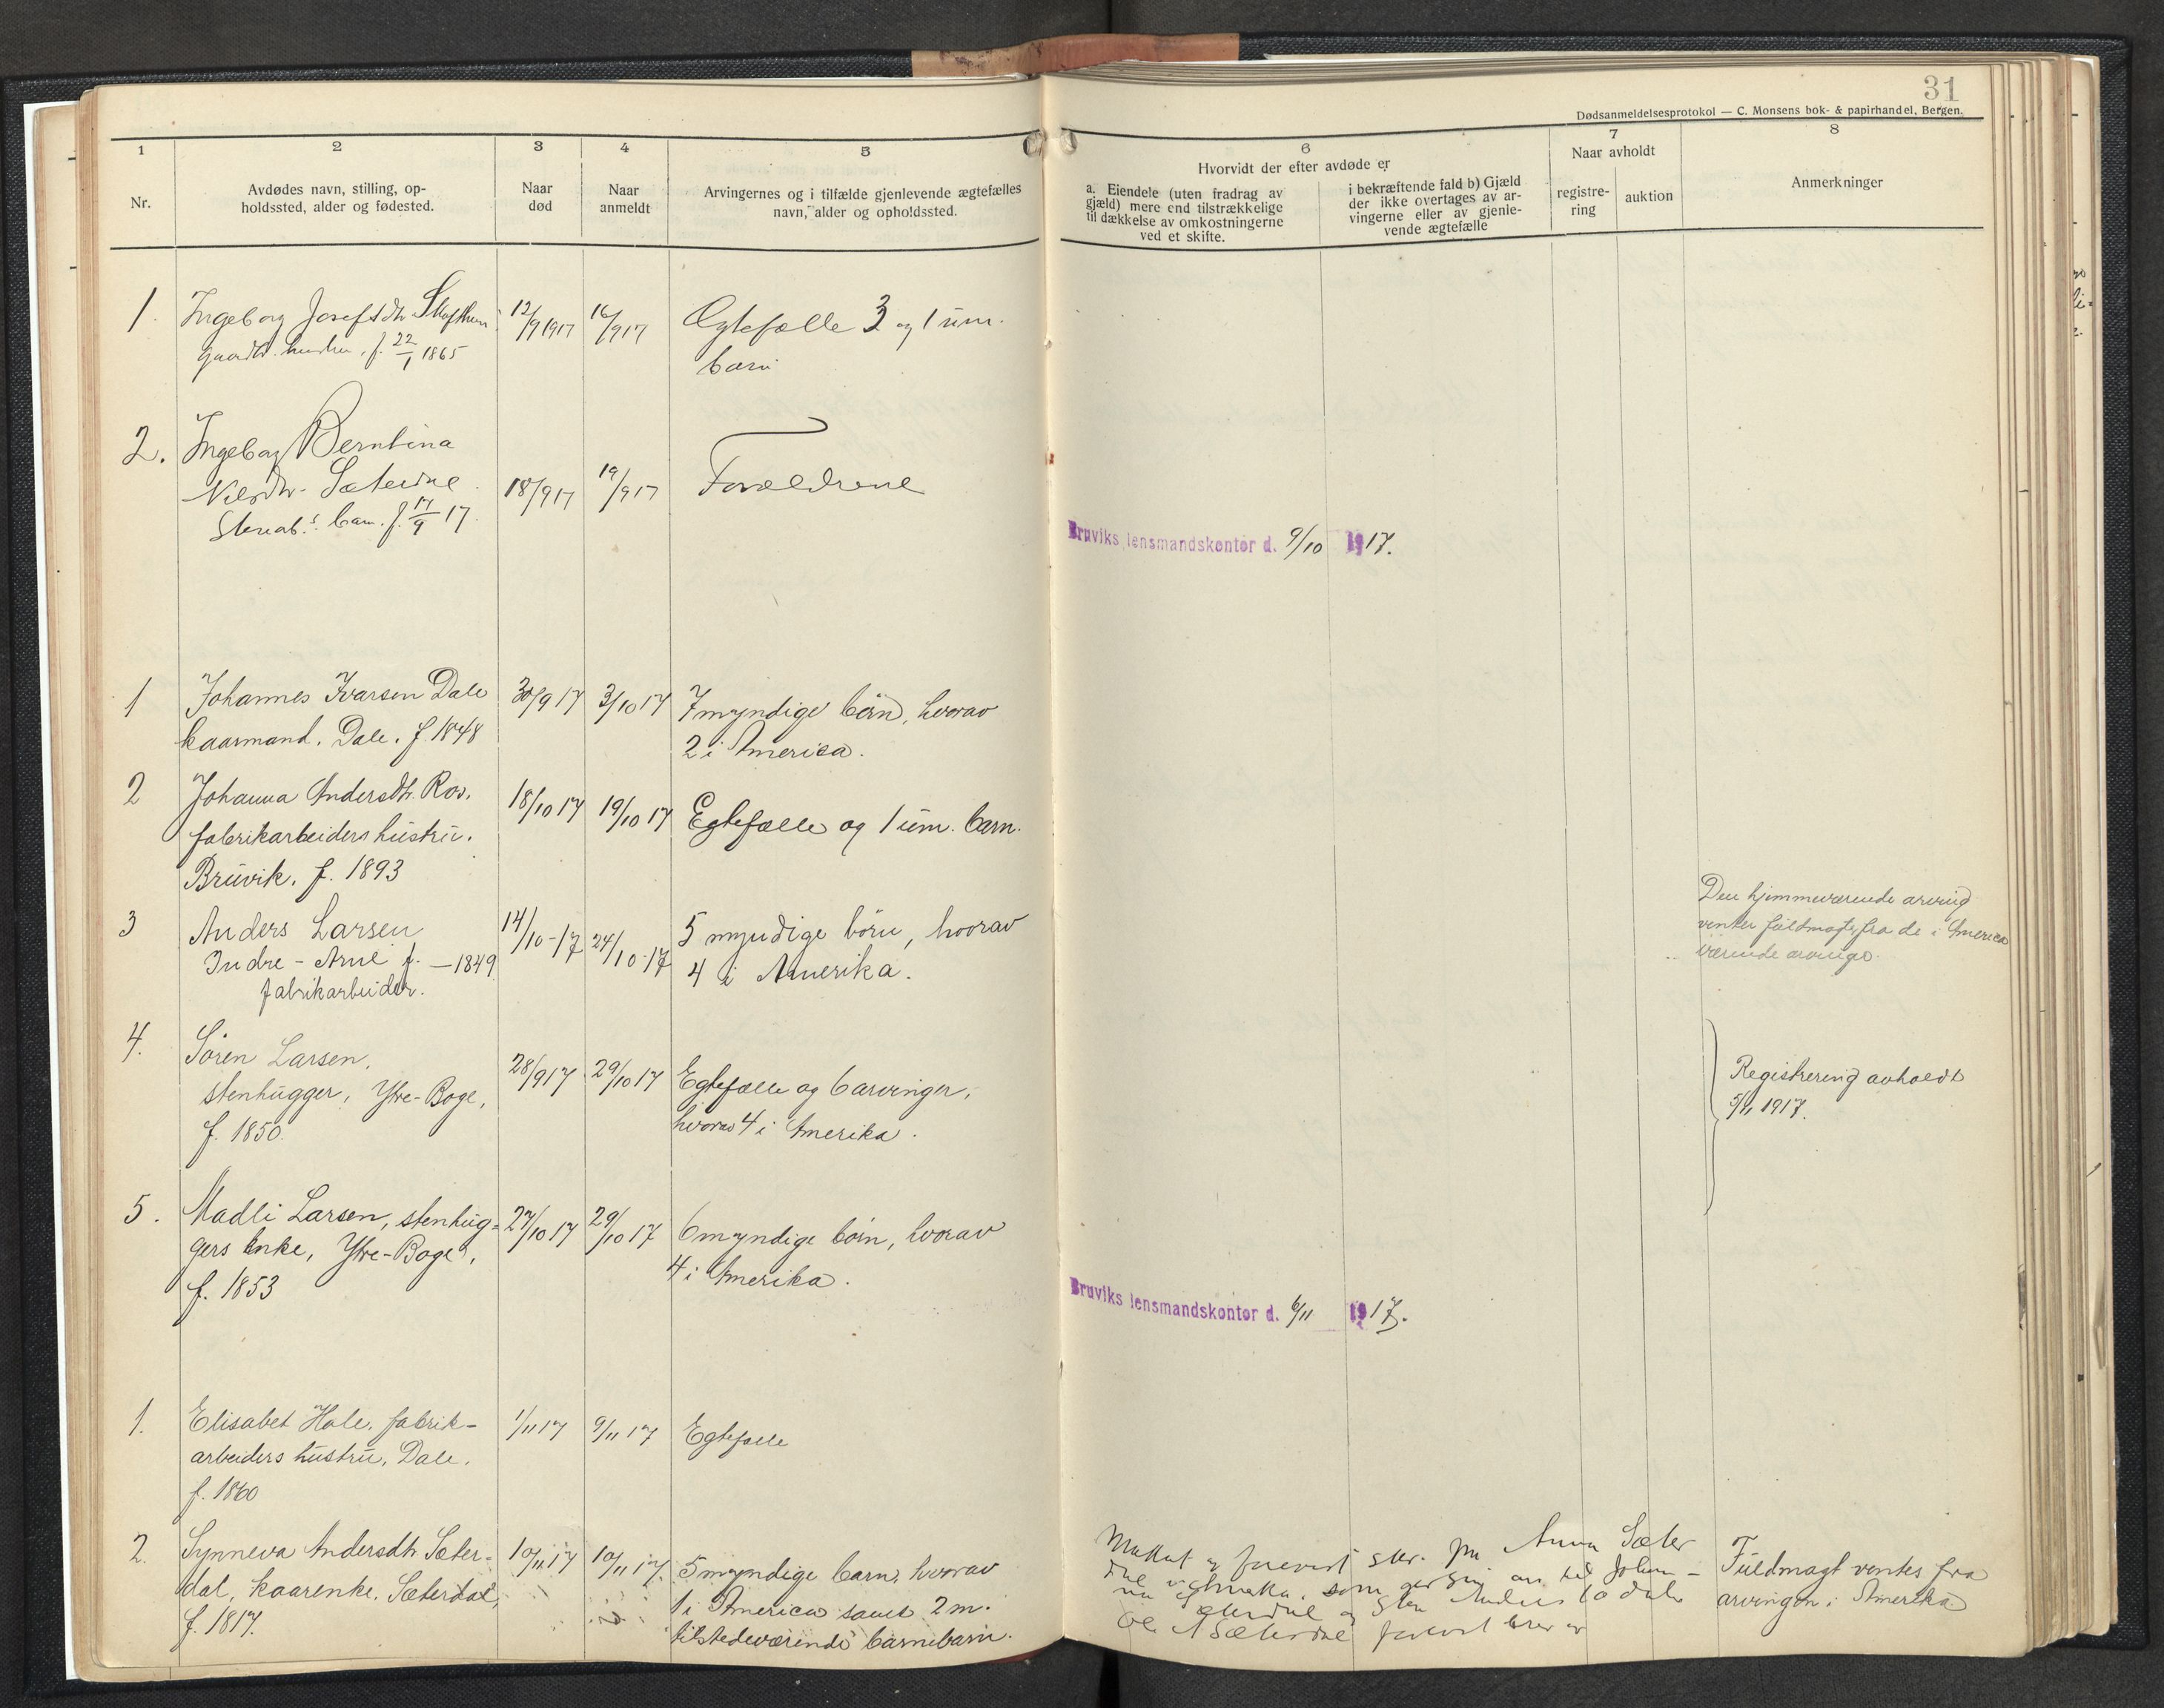 31
Dødsanmeldelsesprotokol — C. Monsens bok- & papirhandel, Bergen.
1
Nr.
2
Avdødes navn, stilling, op-
holdssted, alder og fødested.
3
Naar
død
4
Naar
anmeldt
5
Arvingernes og i tilfælde gjenlevende ægtefælles
navn, alder og opholdssted.
6
Hvorvidt der efter avdøde er
a. Eiendele (uten fradrag av
gjæld) mere end tilstrækkelige
til dækkelse av omkostningerne
ved et skifte.
i bekræftende fald b) Gjæld
der ikke overtages av ar-
vingerne eller av gjenle-
vende ægtefælle
7
Naar avholdt
registre-
ring
auktion
8
Anmerkninger
1. Ingeborg Josefsdtr 12/9 1917 16/9 17 Ægtefælle 3 og 1 um.
f. 22/1 1865 barn
2. Ingeborg Berntina
Nilsdtr. Sæterdal 18/9 17 19/9 17 Forældrene
barn. f. 17/9 17.
Bruviks lensmandskontor d. 9/10 1917.
1 Johannes Ivarsen Dale 30/9 17 3/10 17 7 myndige børn, hvorav
kaarmand. Dale. f. 1848 2 i America.
2 Johanna Andersdtr. Ros. 18/10 17 19/10 17 Egtefælle og 1 um. barn.
fabrikarbeiders hustru.
Bruvik. f. 1893
3 Anders Larsen 14/10-17 24/10-17 5 myndige børn, hvorav
Indre-Arne f. — 1849 4 i Amerika.
fabrikarbeider.
Den hjemmeværende arving
venter fuldmagt fra de i America
værende arvinger.
4. Sören Larsen, 28/9 17 29/10 17 Egtefælle og 6 arvinger,
stenhugger, Ytre-Boge, hvorav 4 i Amerika.
f. 1850.
Registrering avholdt
5/11 1917.
5. Madli Larsen, stenhug- 27/10 17 29/10 17 6 myndige børn, hvorav
gers enke, Ytre-Boge, 4 i Amerika.
f. 1853
Bruviks lensmandskontor d. 6/11 1917.
1. Elisabet Hole. fabrik- 1/11 17 9/11 17 Egtefælle
arbeiders hustru, Dale.
f. 1860
2. Synneva Andersdtr. Sæter- 10/11 17 10/11 17. 5 myndige barn, hvorav
dal, kaarenke. Sæterdal, 1 i America samt 2 m.
f. 1817. tilstedeværende barnebarn.
Anna Sæter
Fuldmagt ventes fra
arvingen i Amerika